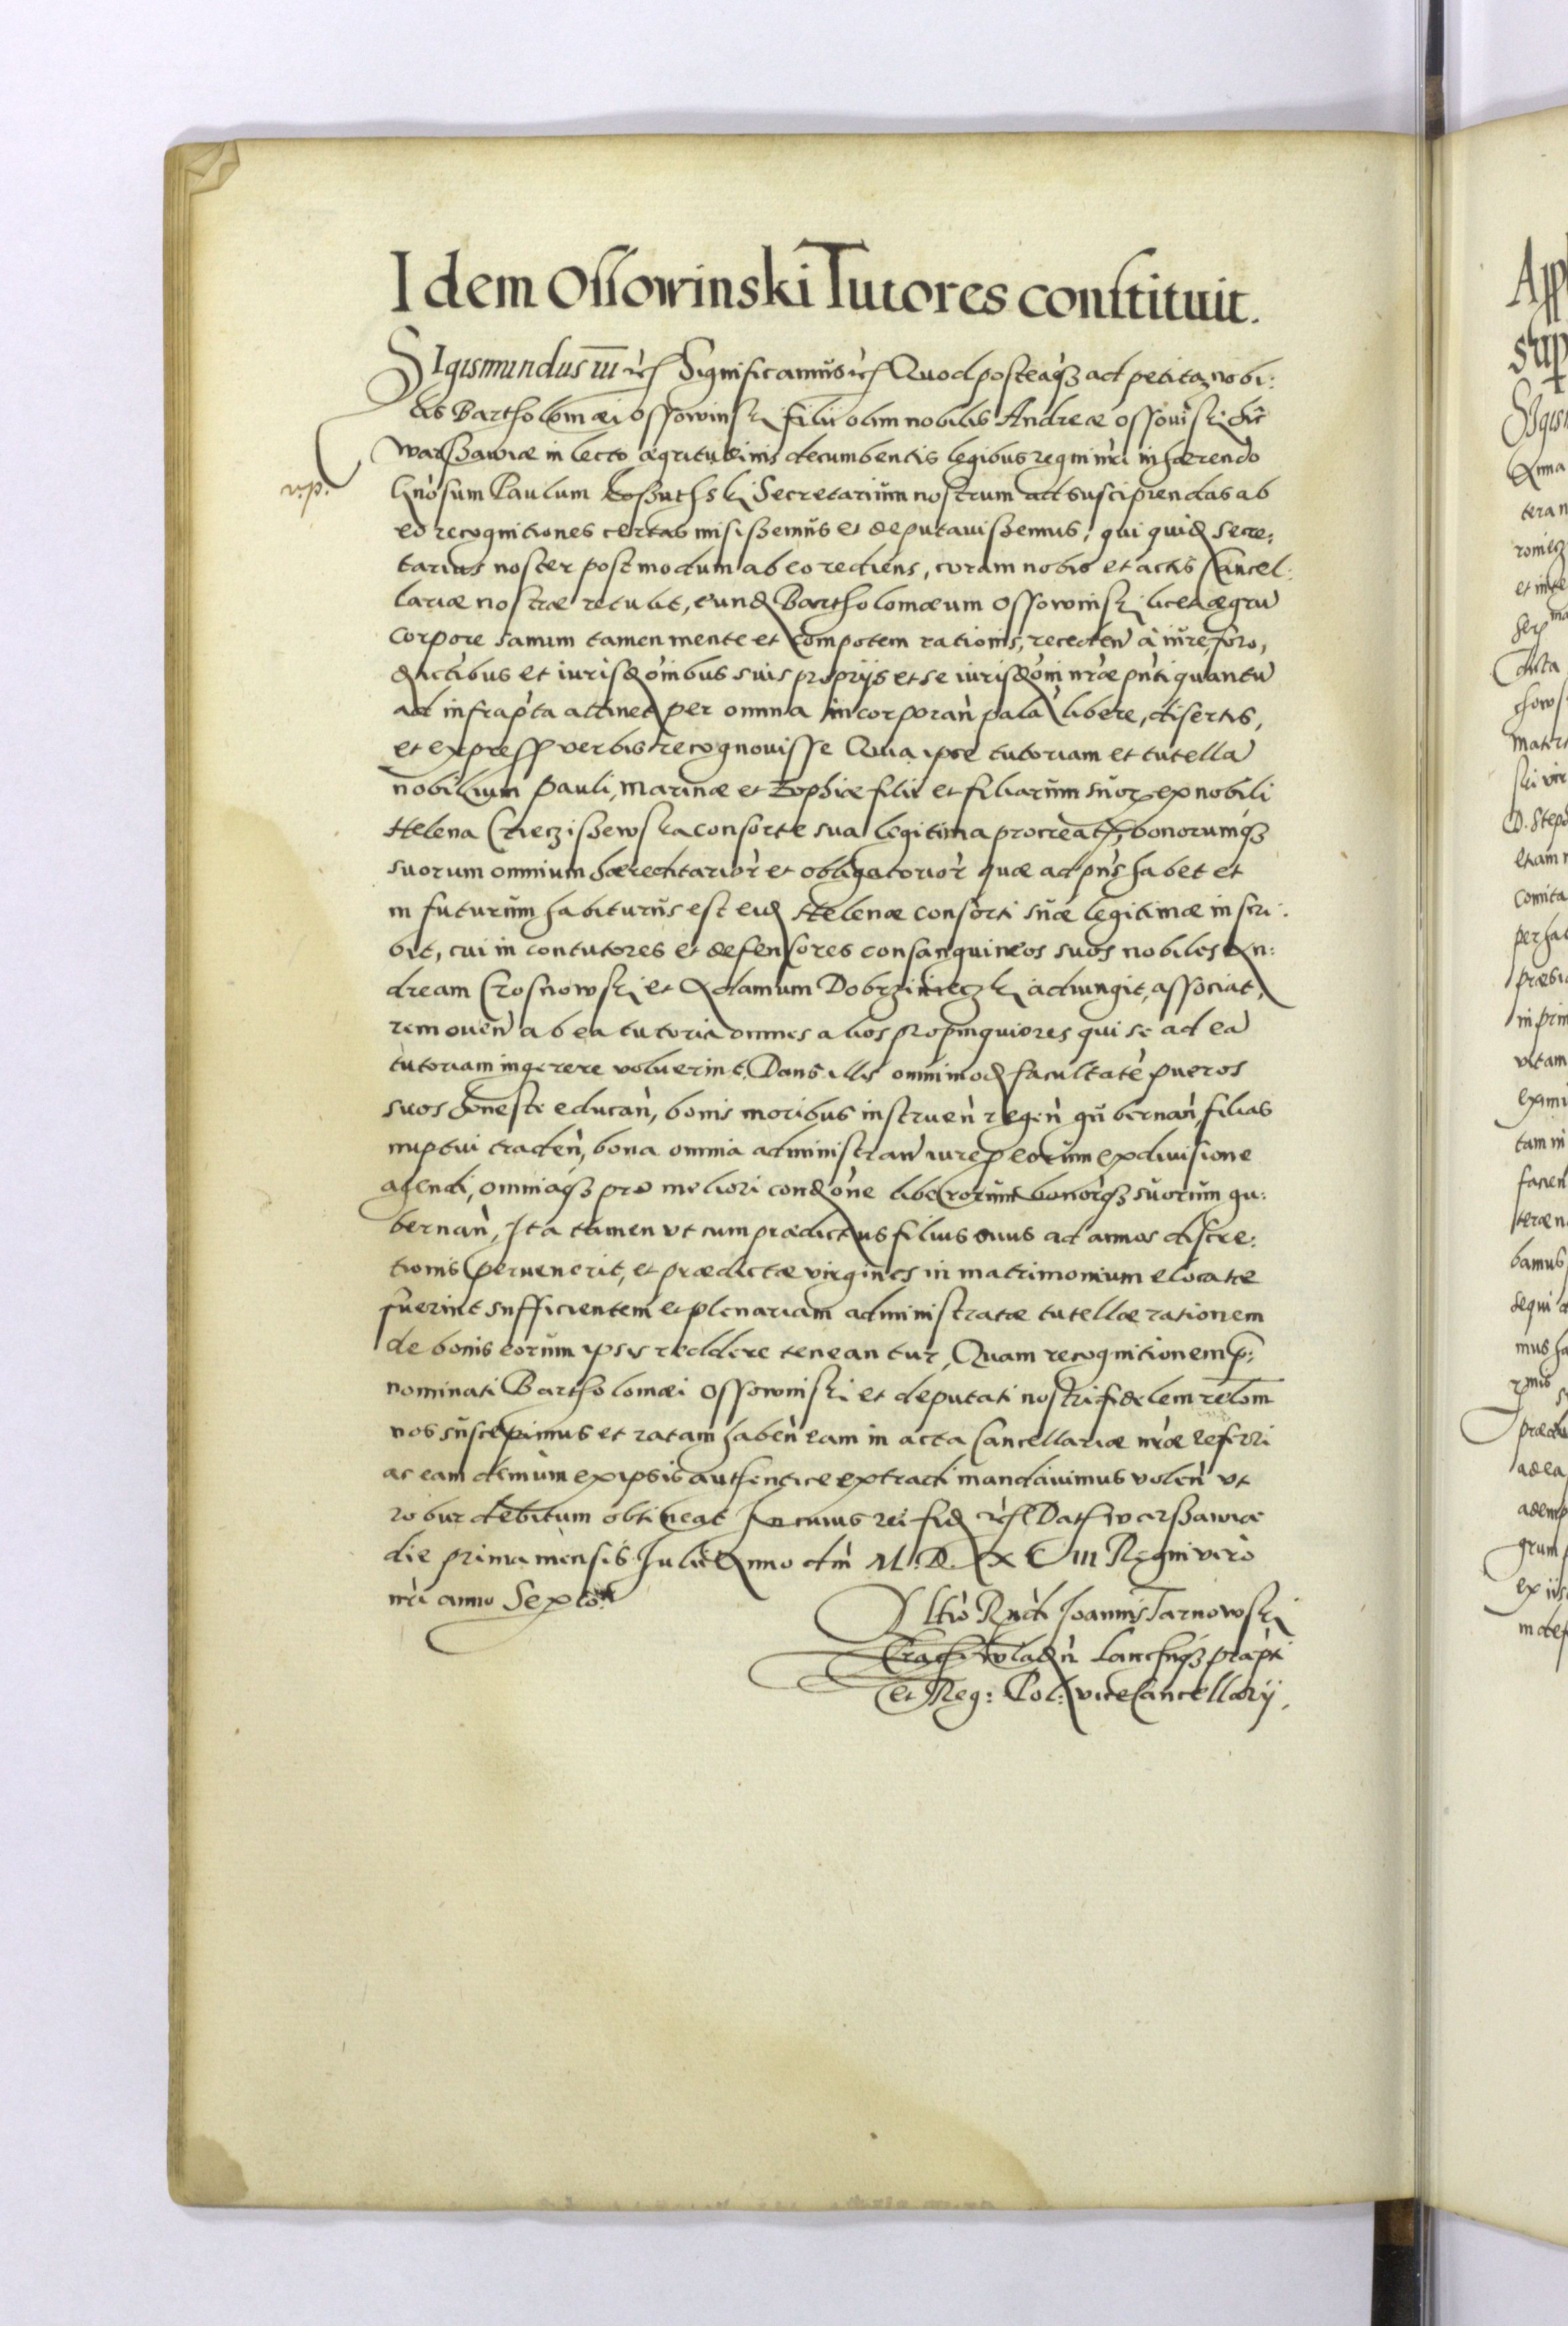 Idem Ossowinski Tutores constituit.
Sigismundus III etc Significamus etc Quod posteaq3 ad petita nobi:
lis Bartholomæi Ossowinski filii olim nobilis Andreæ Ossowiski hic
Warszawiæ in lecto ægritudinis decumbentis legibus regni nri inhærendo
v.p.
Gnosum Paulum Koszuthski Secretarium nostrum ad suscipiendas ab
eo recognitiones certas misissemus et deputavissemus, qui quid Secre:
tarius noster postmodum ab eo rediens, coram nobis et actis Cancel:
lariæ nostræ retulit, eund Bartholomæum Ossowinski licet ægru
corpore sanum tamen mente et compotem rationis, receden à iure, foro,
dictibus et iurisdoinibus suis proprijs et se iurisdoni nræ pnti quantu
ad infrapta attinet per omnia incorporan pala libere, disertis,
et express verbis recognouisse Quia ipse tutoriam et tutella
nobilium Pauli, Marinæ et Zophiæ filii et filiarum suor ex nobili
Helena Criecziszewska consorte sua legitima procreat, bonorumq3
suorum omnium hæreditarior et obligatorior quæ ad pns habet et
in futurum habiturus est eid Helenæ consorti suæ legitimæ inscri:
bit, cui in contutores et defensores consanguineos suos nobiles An:
dream Crosnowski et Adamum Dobrzinieczki adiungit, associat,
remouen ab ea tutoria omnes alios propinquiores qui se ad ea
tutoriam ingerere voluerint. Dans illis omnimod facultate pueros
suos honeste educan, bonis moribus instruen regen gubernan, filias
nuptui traden, bona omnia administran iure p eorum ex divisione
agendi, omniaq3 pro meliori condone liberorum bonorq3 suorum gu:
bernan, Ita tamen ut cum prædictus filius suus ad annos discre:
tionis peruenerit, et prædictæ virgines in matrimonium elocatæ
fuerint sufficientem et plenariam administratæ tutellæ rationem
de bonis eorum ipsis reddere teneantur, Quam recognitionem p:
nominati Bartholomæi Ossowinski et deputati nostri fidelem relom
nos suscepimus et ratam haben eam in acta Cancellariæ nræ referri
ac eam demum ex ipsis authentice extradi mandauimus volen ut
robur debitum obtineat In cuius rei fid etc Dat Warszawiæ
die prima mensis Julii Anno dni M.D.XCIII Regni vero
nri anno Sexto.
Rltio Rndi Joannis Tarnowski
Crac Wladn Lancinq3 præpti
et Reg: Pol: vice Cancellarij.